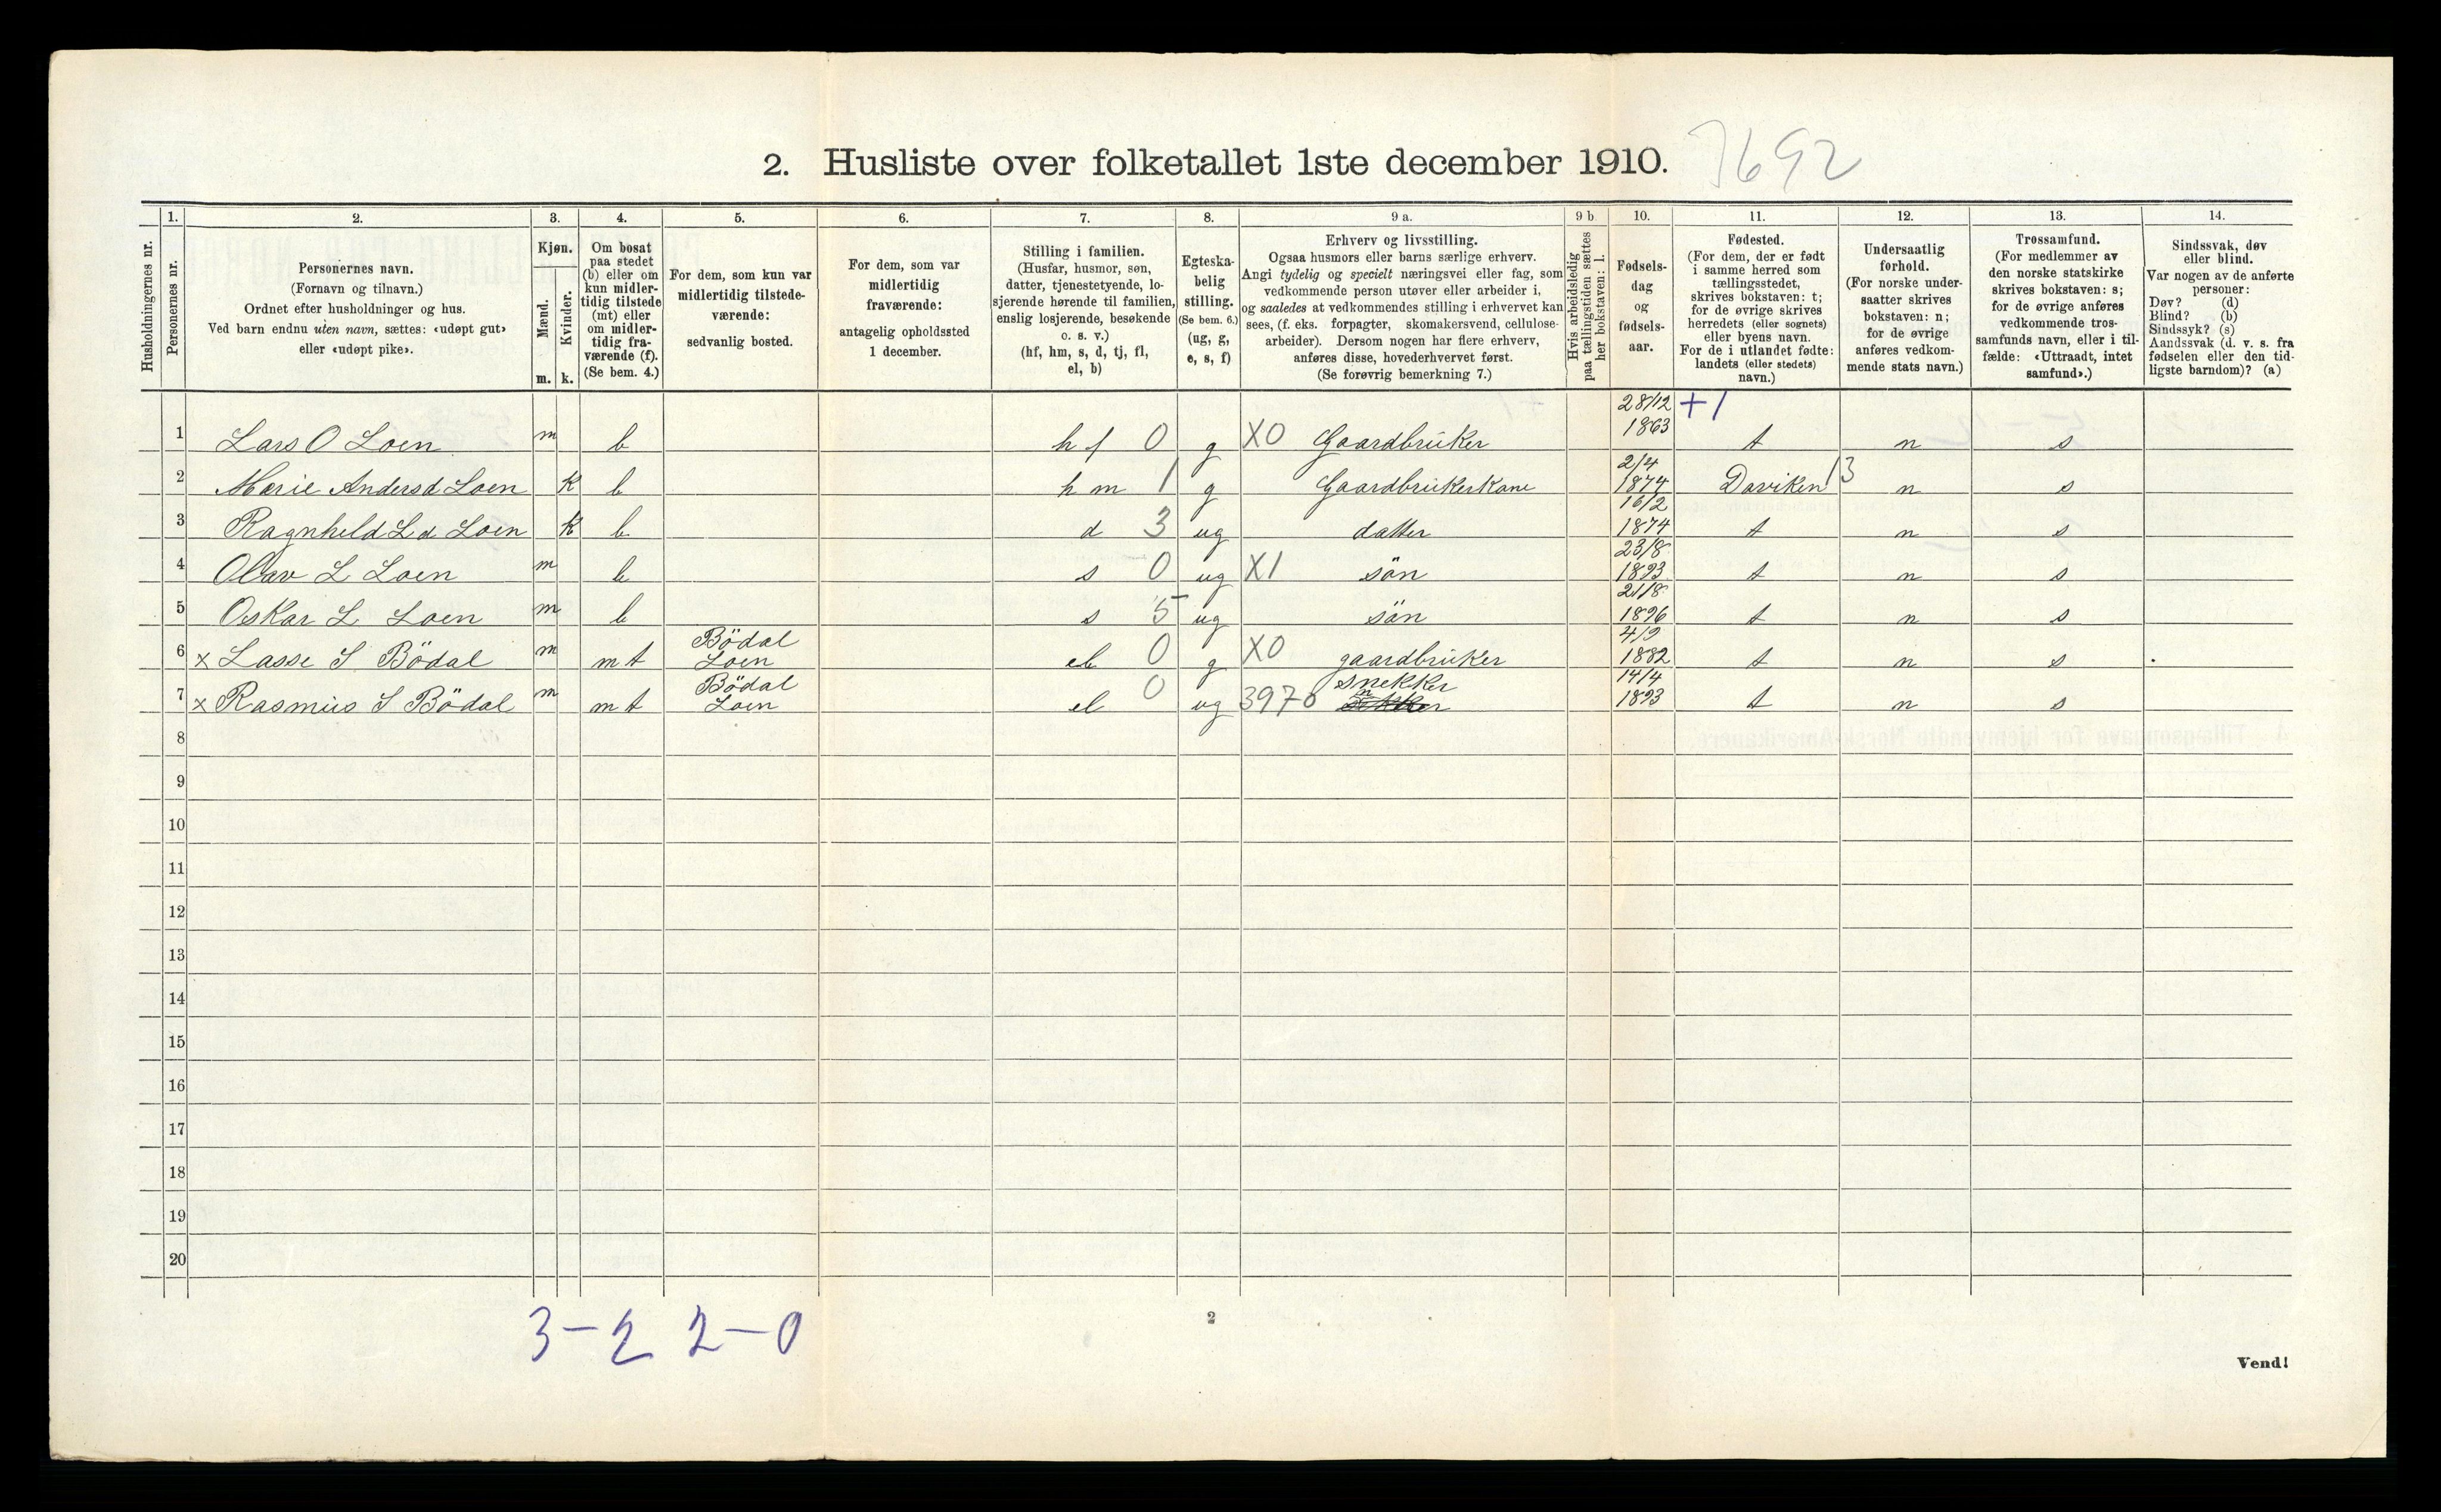 2. Husliste over folketallet 1ste december 1910. 7692
Husholdningernes nr.
1. Personernes nr.
2. Personernes navn.
(Fornavn og tilnavn.)
Ordnet efter husholdninger og hus.
Ved barn endnu uten navn, sættes: «udøpt gut»
eller «udøpt pike».
3. Kjøn.
Mænd. m.
Kvinder. k.
4. Om bosat
paa stedet
(b) eller om
kun midler-
tidig tilstede
(mt) eller
om midler-
tidig fra-
værende (f).
(Se bem. 4.)
5. For dem, som kun var
midlertidig tilstede-
værende:
sedvanlig bosted.
6. For dem, som var
midlertidig
fraværende:
antagelig opholdssted
1 december.
7. Stilling i familien.
(Husfar, husmor, søn,
datter, tjenestetyende, lo-
sjerende hørende til familien,
enslig losjerende, besøkende
o. s. v.)
(hf, hm, s, d, tj, fl,
el, b)
8. Egteska-
belig
stilling.
(Se bem. 6.)
(ug, g,
e, s, f)
9 a. Erhverv og livsstilling.
Ogsaa husmors eller barns særlige erhverv.
Angi tydelig og specielt næringsvei eller fag, som
vedkommende person utøver eller arbeider i,
og saaledes at vedkommendes stilling i erhvervet kan
sees, (f. eks. forpagter, skomakersvend, cellulose-
arbeider). Dersom nogen har flere erhverv,
anføres disse, hovederhvervet først.
(Se forøvrig bemerkning 7.)
9 b Hvis arbeidsledig
paa tællingstiden sættes
her bokstaven: l.
10. Fødsels-
dag
og
fødsels-
aar.
11. Fødested.
(For dem, der er født
i samme herred som
tællingsstedet,
skrives bokstaven: t;
for de øvrige skrives
herredets (eller sognets)
eller byens navn.
For de i utlandet fødte:
landets (eller stedets)
navn.)
12. Undersaatlig
forhold.
(For norske under-
saatter skrives
bokstaven: n;
for de øvrige
anføres vedkom-
mende stats navn.)
13. Trossamfund.
(For medlemmer av
den norske statskirke
skrives bokstaven: s;
for de øvrige anføres
vedkommende tros-
samfunds navn, eller i til-
fælde: «Uttraadt, intet
samfund».)
14. Sindssvak, døv
eller blind.
Var nogen av de anførte
personer:
Døv? (d)
Blind? (b)
Sindssyk? (s)
Aandssvak (d. v. s. fra
fødselen eller den tid-
ligste barndom)? (a)
1 Lars O Loen m b h f 0 g X0 Gaardbruker 28/12 1863 +1 t n s
2 Marie Andersd Loen k b h m 1 g Gaardbrukerkone 2/4 1874 Daviken 13 n s
3 Ragnheld L d Loen k b d 3 ug datter 16/2 1874 t n s
4 Olav L Loen m b s 0 ug X1 sön 23/8 1893 t n s
5 Oskar L Loen m b s 5 ug sön 21/8 1896 t n s
6 x Lasse S Bödal m m t Bödal Loen el 0 g X0 gaardbruker 4/9 1882 t n s
7 x Rasmus S Bödal m m t Bödal Loen el 0 ug 3970 snekker 14/4 1893 t n s
8
9
10
11
12
13
14
15
16
17
18
19
20
3-2 2-0
2
Vend!